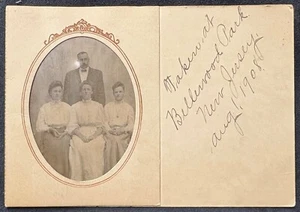 Taken at
Bellewood Park
New Jersey
Aug. 1908